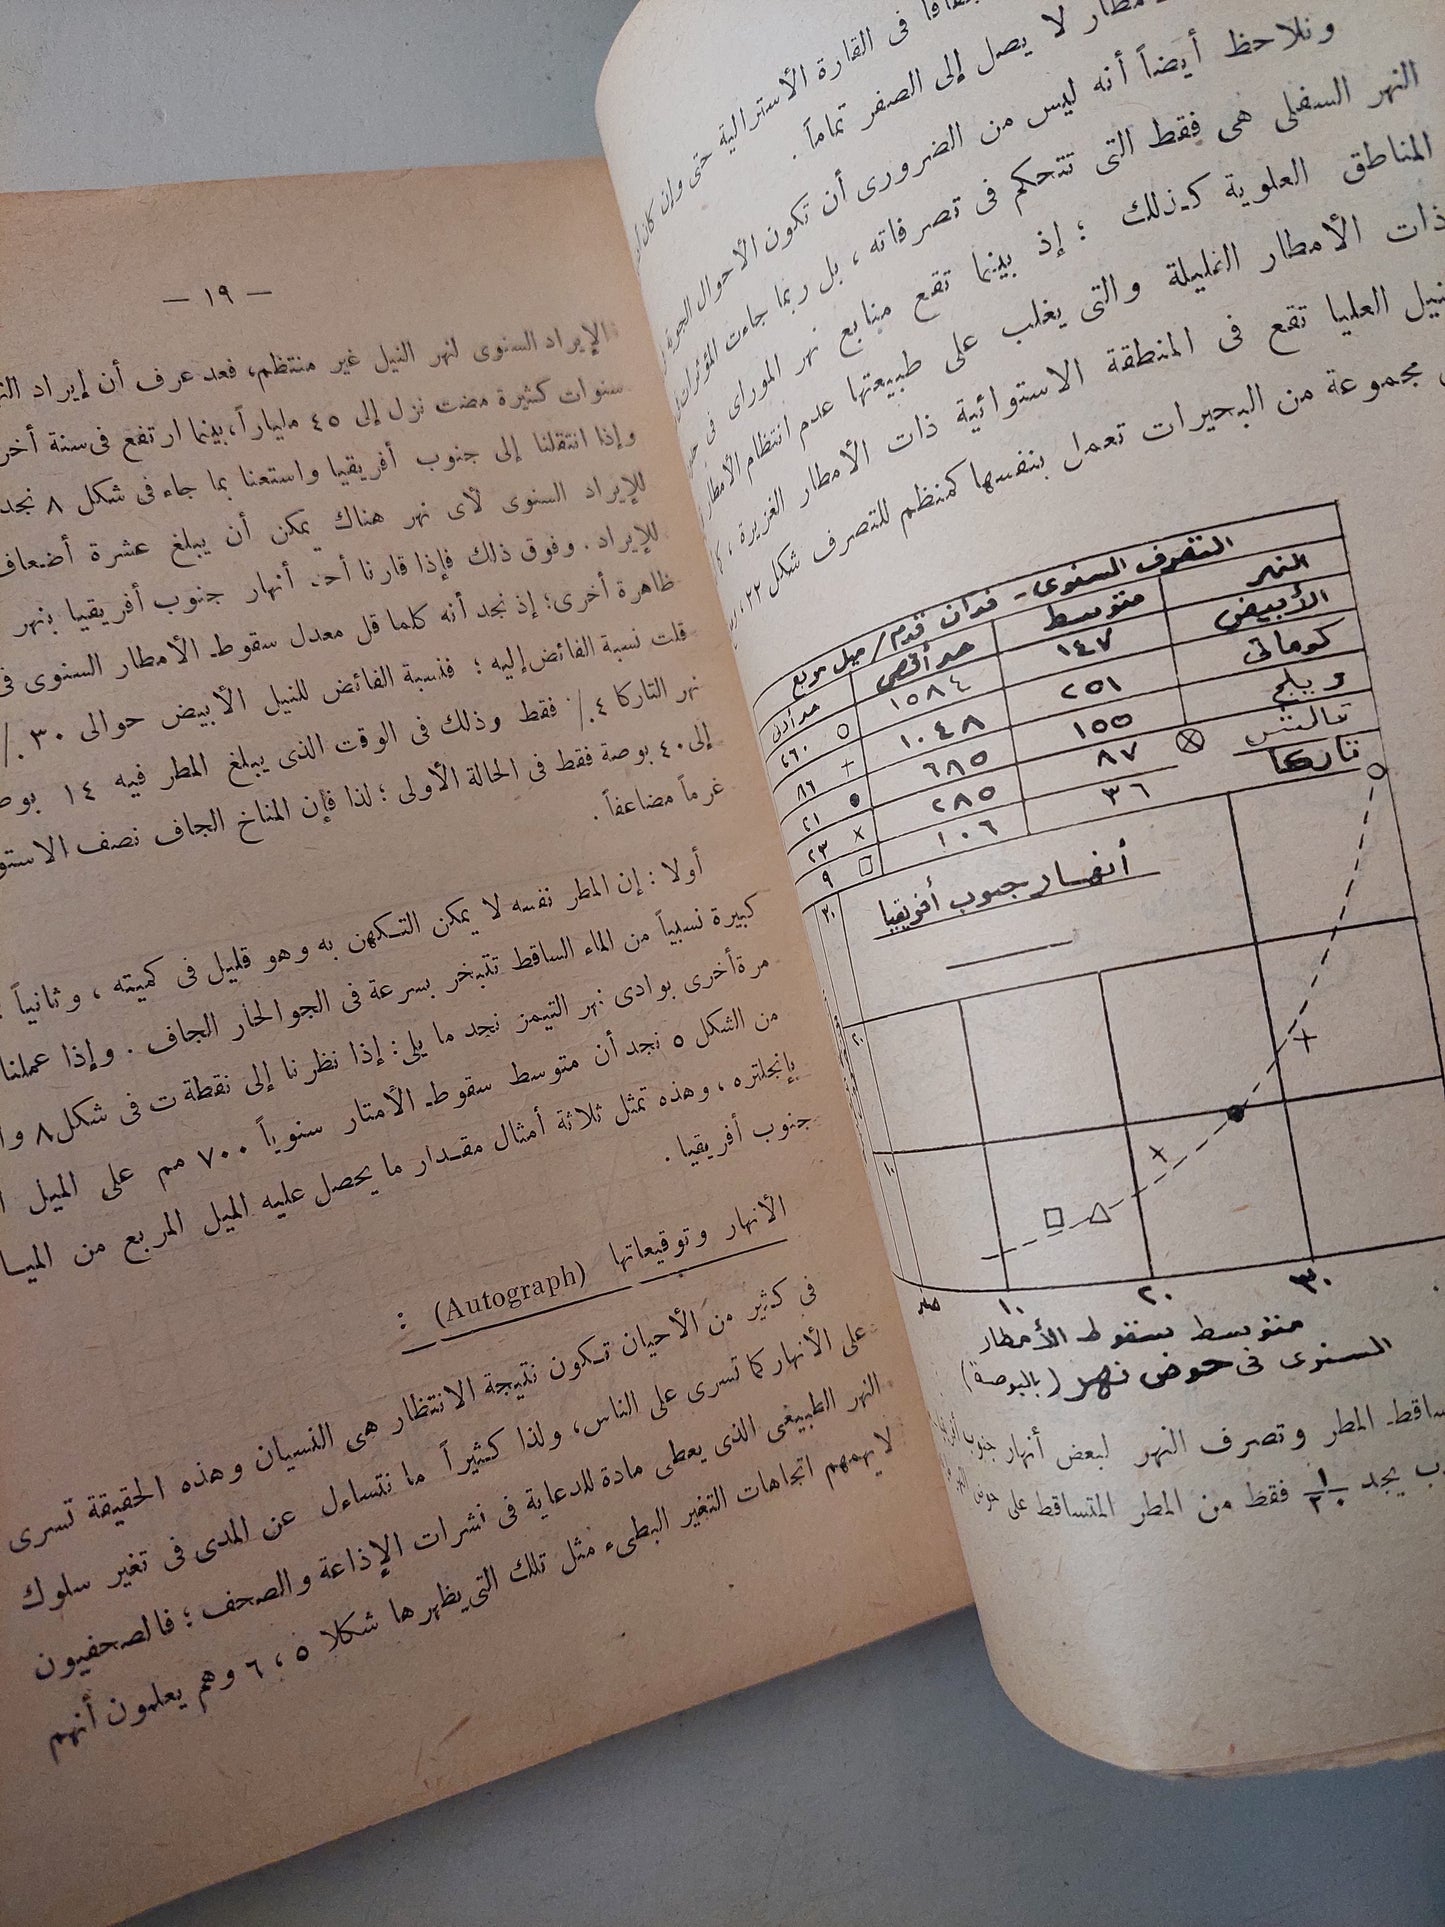 فى القارة الأسترالية حتى وإن كان
لا يصل إلى الصفر تماماً .
ونلاحظ أيضاً أنه ليس من الضرورى أن تكون الأحوال الجوية
النهر السفلى هى فقط التى تتحكم فى تصرفاته ، بل ربما جاءت المؤثرات
المناطق العلوية كذلك ؛ إذ بينما تقع منابع نهر الموراى فى
ذات الأمطار القليلة والتى يغلب على طبيعتها عدم انتظام الأمطار
العليا تقع فى المنطقة الاستوائية ذات الأمطار الغزيرة ،
مجموعة من البحيرات تعمل بنفسها كمنظم للتصرف شكل ٢٢
التصرف السنوى - فدان قدم/ميل مربع
النهر متوسط حد أقصى حد أدنى
الأبيض ١٤٧ ١٥٨٤ ٢٦٠ ○
كوماتى ٢٥١ ١٠٤٨ ٨٦ +
ويبلج ١٥٥ ٦٨٥ ٢١ ●
تالنتس ⊗ ٨٧ ٢٨٥ ٢٣ ×
تاركا ٣٦ ١٠٦ ٩ □
أنهار جنوب أفريقيا
٣٠
٢٠
١٠
صفر ١٠ ٢٠ ٣٠
متوسط سقوط الأمطار
السنوى فى حوض نهر (بالبوصة)
المطر وتصرف النهر لبعض أنهار جنوب
يجد ١/٢٠ فقط من المطر المتساقط على حوض النهر
— ١٩ —
الإيراد السنوى لنهر النيل غير منتظم، فعد عرف أن إيراد
سنوات كثيرة مضت نزل إلى ٤٥ ملياراً، بينما ارتفع فى سنة
وإذا انتقلنا إلى جنوب أفريقيا واستعنا بما جاء فى شكل ٨ نجد
للإيراد السنوى لأى نهر هناك يمكن أن يبلغ عشرة أضعاف
للإيراد . وفوق ذلك فإذا قارنا أحد أنهار جنوب أفريقيا بنهر
ظاهرة أخرى؛ إذ نجد أنه كلما قل معدل سقوط الأمطار السنوى فى
قلت نسبة الفائض إليه ؛ فنسبة الفائض للنيل الأبيض حوالى ٣٠ ٪
نهر التاركا ٤٪ فقط وذلك فى الوقت الذى يبلغ المطر فيه ١٤
إلى ٤٠ بوصة فقط فى الحالة الأولى ؛ لذا فإن المناخ الجاف نصف
غرماً مضاعفاً .
أولا : إن المطر نفسه لا يمكن التكهن به وهو قليل فى كميته ، وثانياً :
كبيرة نسبياً من الماء الساقط تتبخر بسرعة فى الجو الحار الجاف . وإذا عملنا
مرة أخرى بوادى نهر التيمز نجد ما يلى : إذا نظرنا إلى نقطة ت فى شكل ٨
من الشكل ٥ نجد أن متوسط سقوط الأمتار سنوياً ٧٠٠ مم على الميل
بإنجلتره ، وهذه تمثل ثلاثة أمثال مقدار ما يحصل عليه الميل المربع من
جنوب أفريقيا .
الأنهار وتوقيعاتها (Autograph) :
فى كثير من الأحيان تكون نتيجة الانتظار هى النسيان وهذه الحقيقة تسرى
على الأنهار كما تسرى على الناس، ولذا كثيراً ما نتساءل عن المدى فى تغير سلوك
النهر الطبيعى الذى يعطى مادة للدعاية فى نشرات الإذاعة والصحف ؛ فالصحفيون
لا يهمهم اتجاهات التغير البطىء مثل تلك التى يظهرها شكلا ٥ ، ٦ وهم يعلمون أنهم